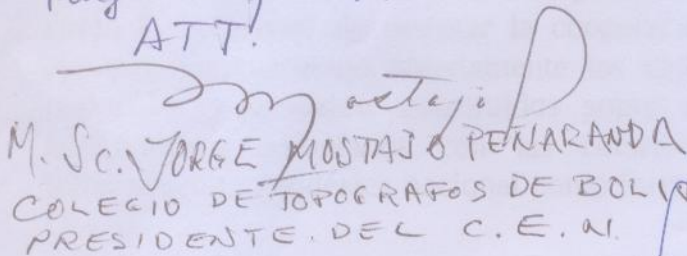 ATT!
Mostajo
M. Sc. JORGE MOSTAJO PEÑARANDA
COLEGIO DE TOPOGRAFOS DE BOLIV
PRESIDENTE. DEL C. E. N.